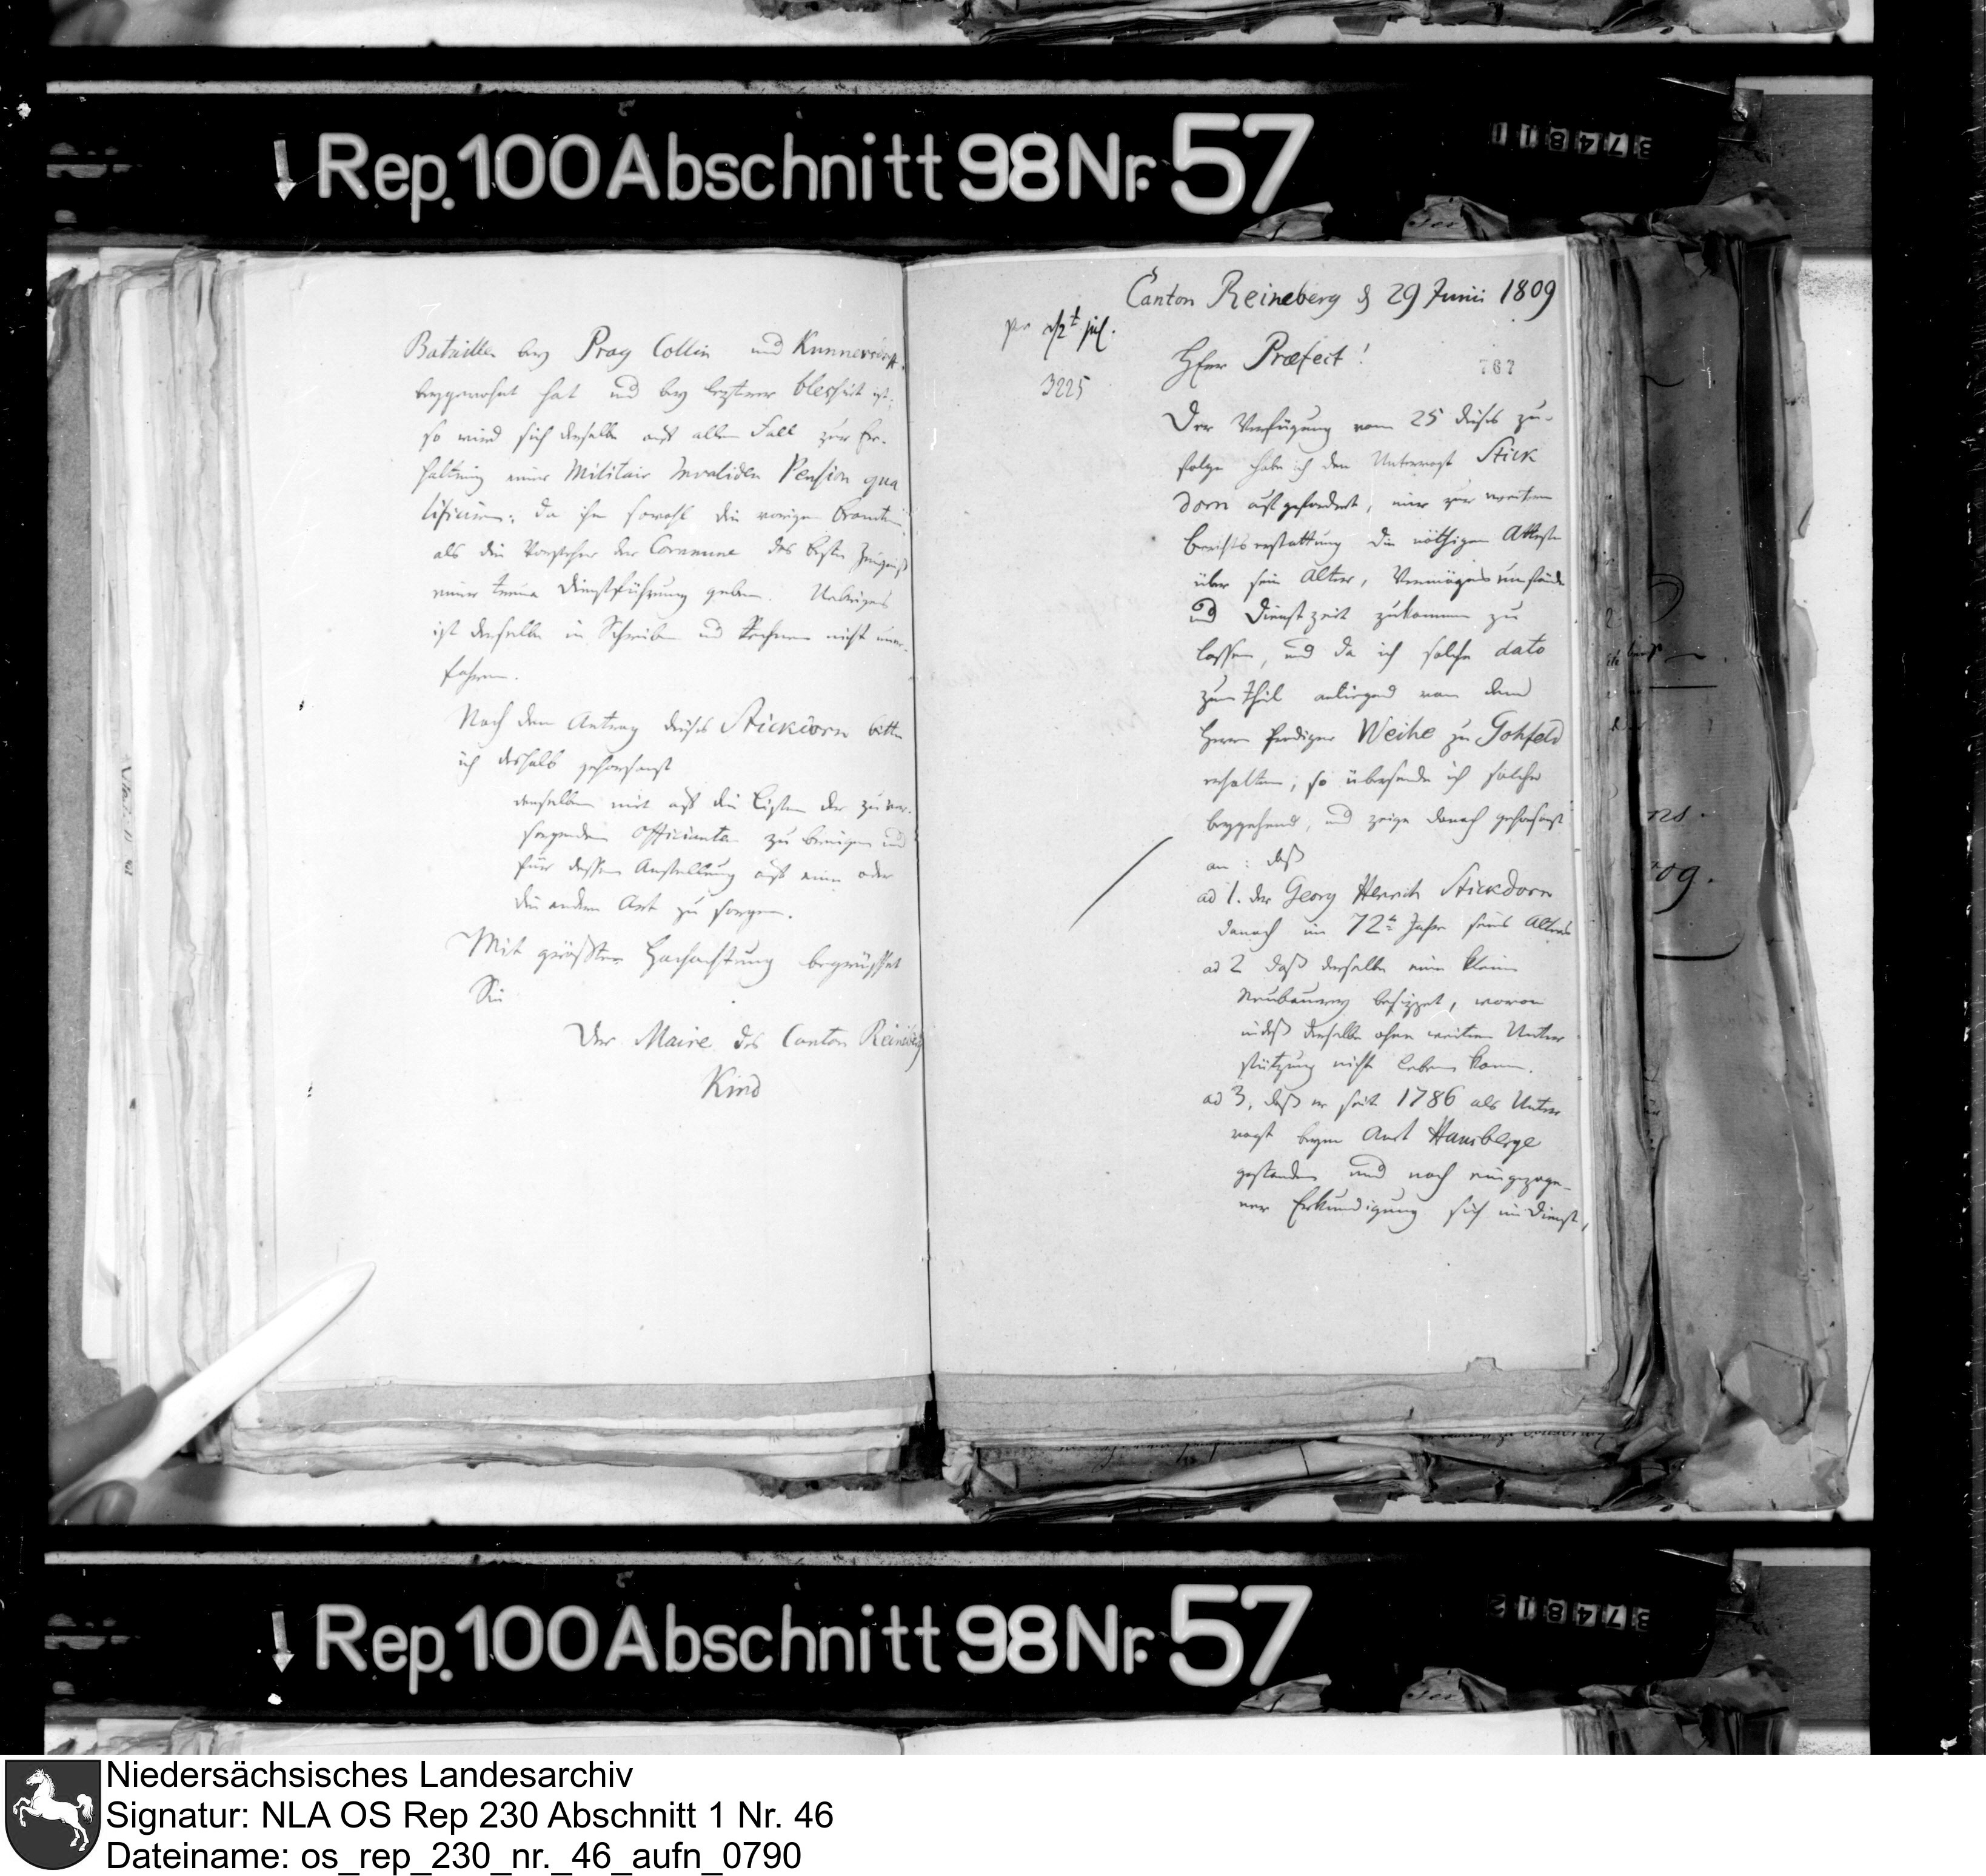 Rep. 100 Abschnitt 98 Nr. 57
374811
Bataillen bey Prag Collin und Kunnersdorff
beygewohnt hat und bey lezterer blessirt ist;
so wird sich derselbe auf allen Fall zur Er-
haltung einer Militair Invaliden Pension qua
lificiren; da ihm sowohl die vorigen Beamten
als die Vorsteher der Commune das beste Zeugniß
einer treuen Dienstführung geben. Uebrigens
ist derselbe im Schreiben und Rechnen nicht uner-
fahren.
Nach dem Antrag dieses Stickdorn bitte
ich deshalb gehorsamst
denselben mit auf die Listen der zu ver-
sorgenden Officianten zu bringen und
für dessen Anstellung auf eine oder
die andere Art zu sorgen.
Mit größter Hochachtung begrüsset
Sie
Der Maire des Canton Reineberg
Kind
Canton Reineberg d 29 Junii 1809
pr d 2t jul.
3225
Herr Præfect!
767
Der Verfügung vom 25 dieses zu-
folge habe ich den Untervogt Stick
dorn aufgefordert, mir zur weitern
Berichtserstattung die nöthigen Atteste
über sein Alter, Vermögensumstände
und Dienstzeit zukommen zu
lassen, und da ich solche dato
zum Theil anliegend von dem
Herrn Prediger Weihe zu Gohfeld
erhalten; so übersende ich solche
beygehend, und zeige danach gehorsamst
an: daß
ad 1. der Georg Henrich Stickdorn
danach im 72t Jahre seines Alters
ad 2 daß derselbe eine kleine
Neubauerey besizzet, wovon
indeß derselbe ohne weitere Unter
stützung nicht leben kann.
ad 3, daß er seit 1786 als Unter
vogt beym Amt Hausberge
gestanden und nach eingezoge-
ner Erkundigung sich im Dienst,
Rep. 100 Abschnitt 98 Nr. 57
374812
Niedersächsisches Landesarchiv
Signatur: NLA OS Rep 230 Abschnitt 1 Nr. 46
Dateiname: os_rep_230_nr._46_aufn_0790